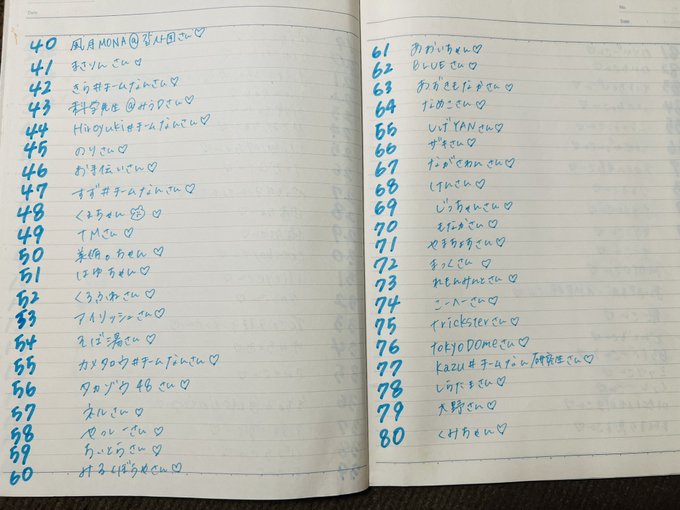 Date
40 風月MONA@ さん♡
41 まさりんさん♡
42 きら#チームなんさん♡
43 科学先生@みうDさん♡
44 Hiroyuki#チームなんさん♡
45 のりさん♡
46 お手伝いさん♡
47 すず#チームなんさん♡
48 くまちゃん♡
49 TMさん♡
50 美網。ちゃん♡
51 はゆちゃん♡
52 くろふねさん♡
53 アイリッシュさん♡
54 そば湯さん♡
55 カメタロウ#チームなんさん♡
56 タカゾウ48さん♡
57 ネルさん♡
58 やっしーさん♡
59 ちぃとらさん♡
60 みるくぼうやさん♡
No.
Date
61 あおいちゃん♡
62 BLUEさん♡
63 あがさもなかさん♡
64 なめこさん♡
65 ひげYANさん♡
66 ザキさん♡
67 ながさわさん♡
68 けんさん♡
69 じっちゃんさん♡
70 もなかさん♡
71 やまちょうさん♡
72 まっくさん♡
73 れもんみんとさん♡
74 こーへーさん♡
75 tricksterさん♡
76 tokyoDomeさん♡
77 kazu#チームなん/研究生さん♡
78 しらたまさん♡
79 大野さん♡
80 くみちゃん♡